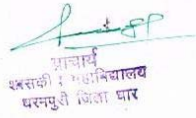 आचार्य
शासकीय महाविद्यालय
धरमपुरी जिला धार